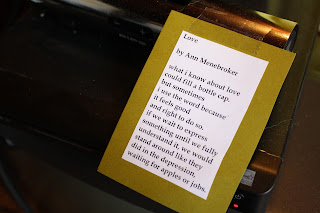 Love
by Ann Menebroker
what i know about love
could fill a bottle cap.
but sometimes
i use the word because
it feels good
and right to do so.
if we wait to express
something until we fully
understand it, we would
stand around like they
did in the depression,
waiting for apples or jobs.